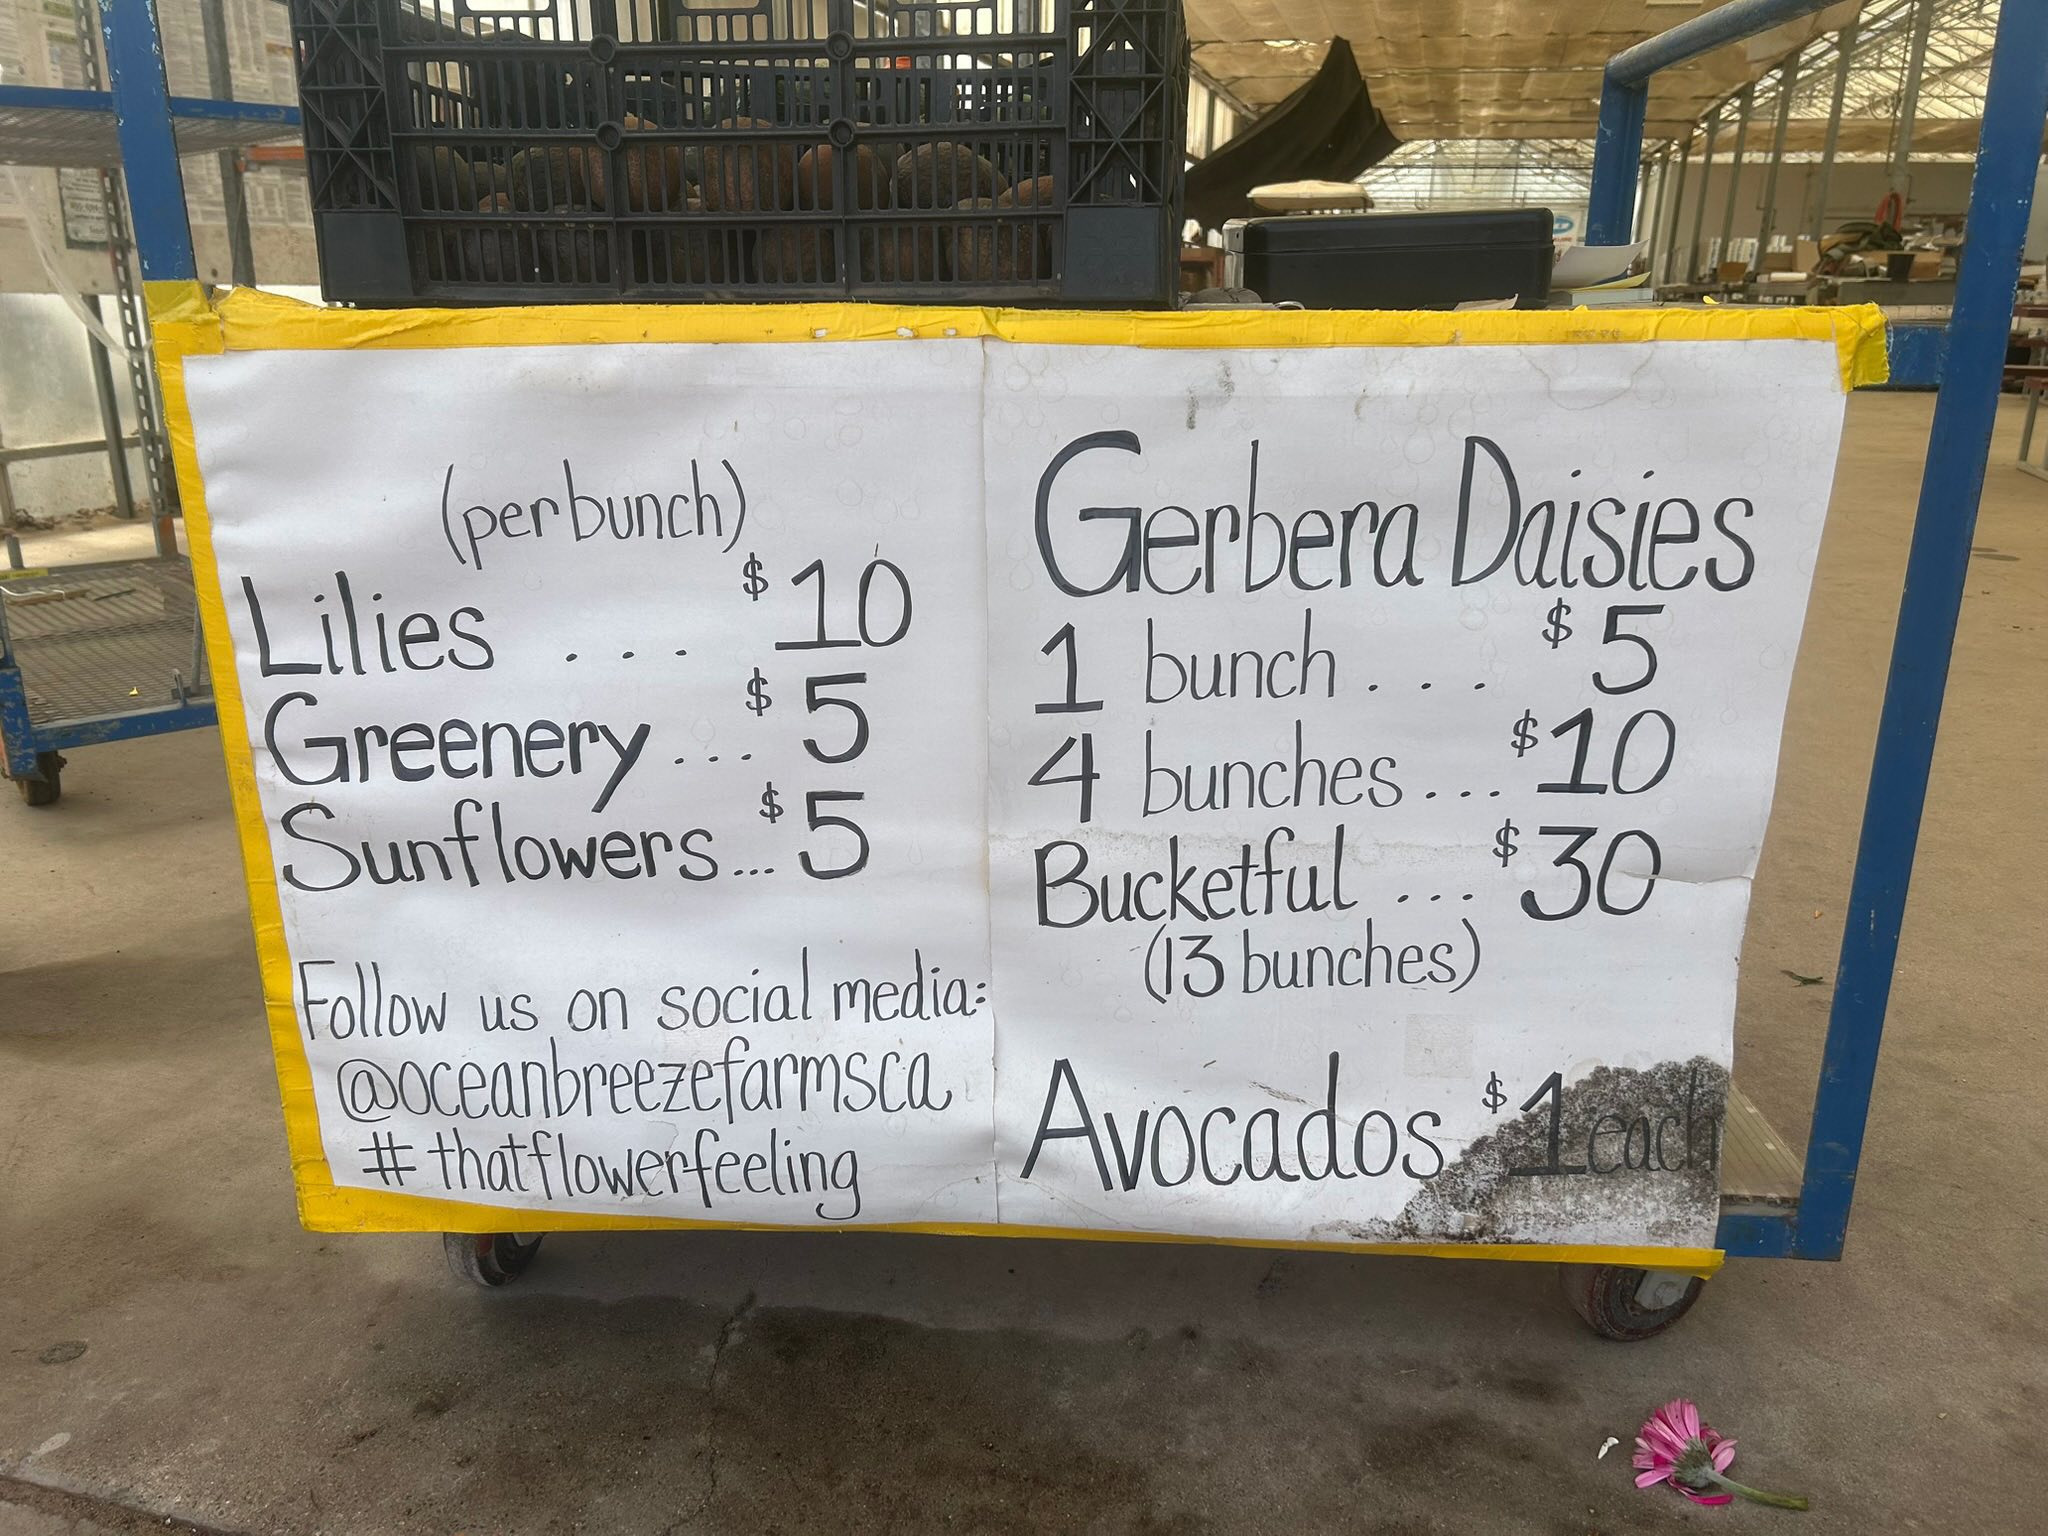 (per bunch)
Lilies ... $10
Greenery ... $5
Sunflowers ... $5
Follow us on social media:
@oceanbreezefarmsca
#thatflowerfeeling
Gerbera Daisies
1 bunch .... $5
4 bunches ... $10
Bucketful ... $30
(13 bunches)
Avocados $1 each